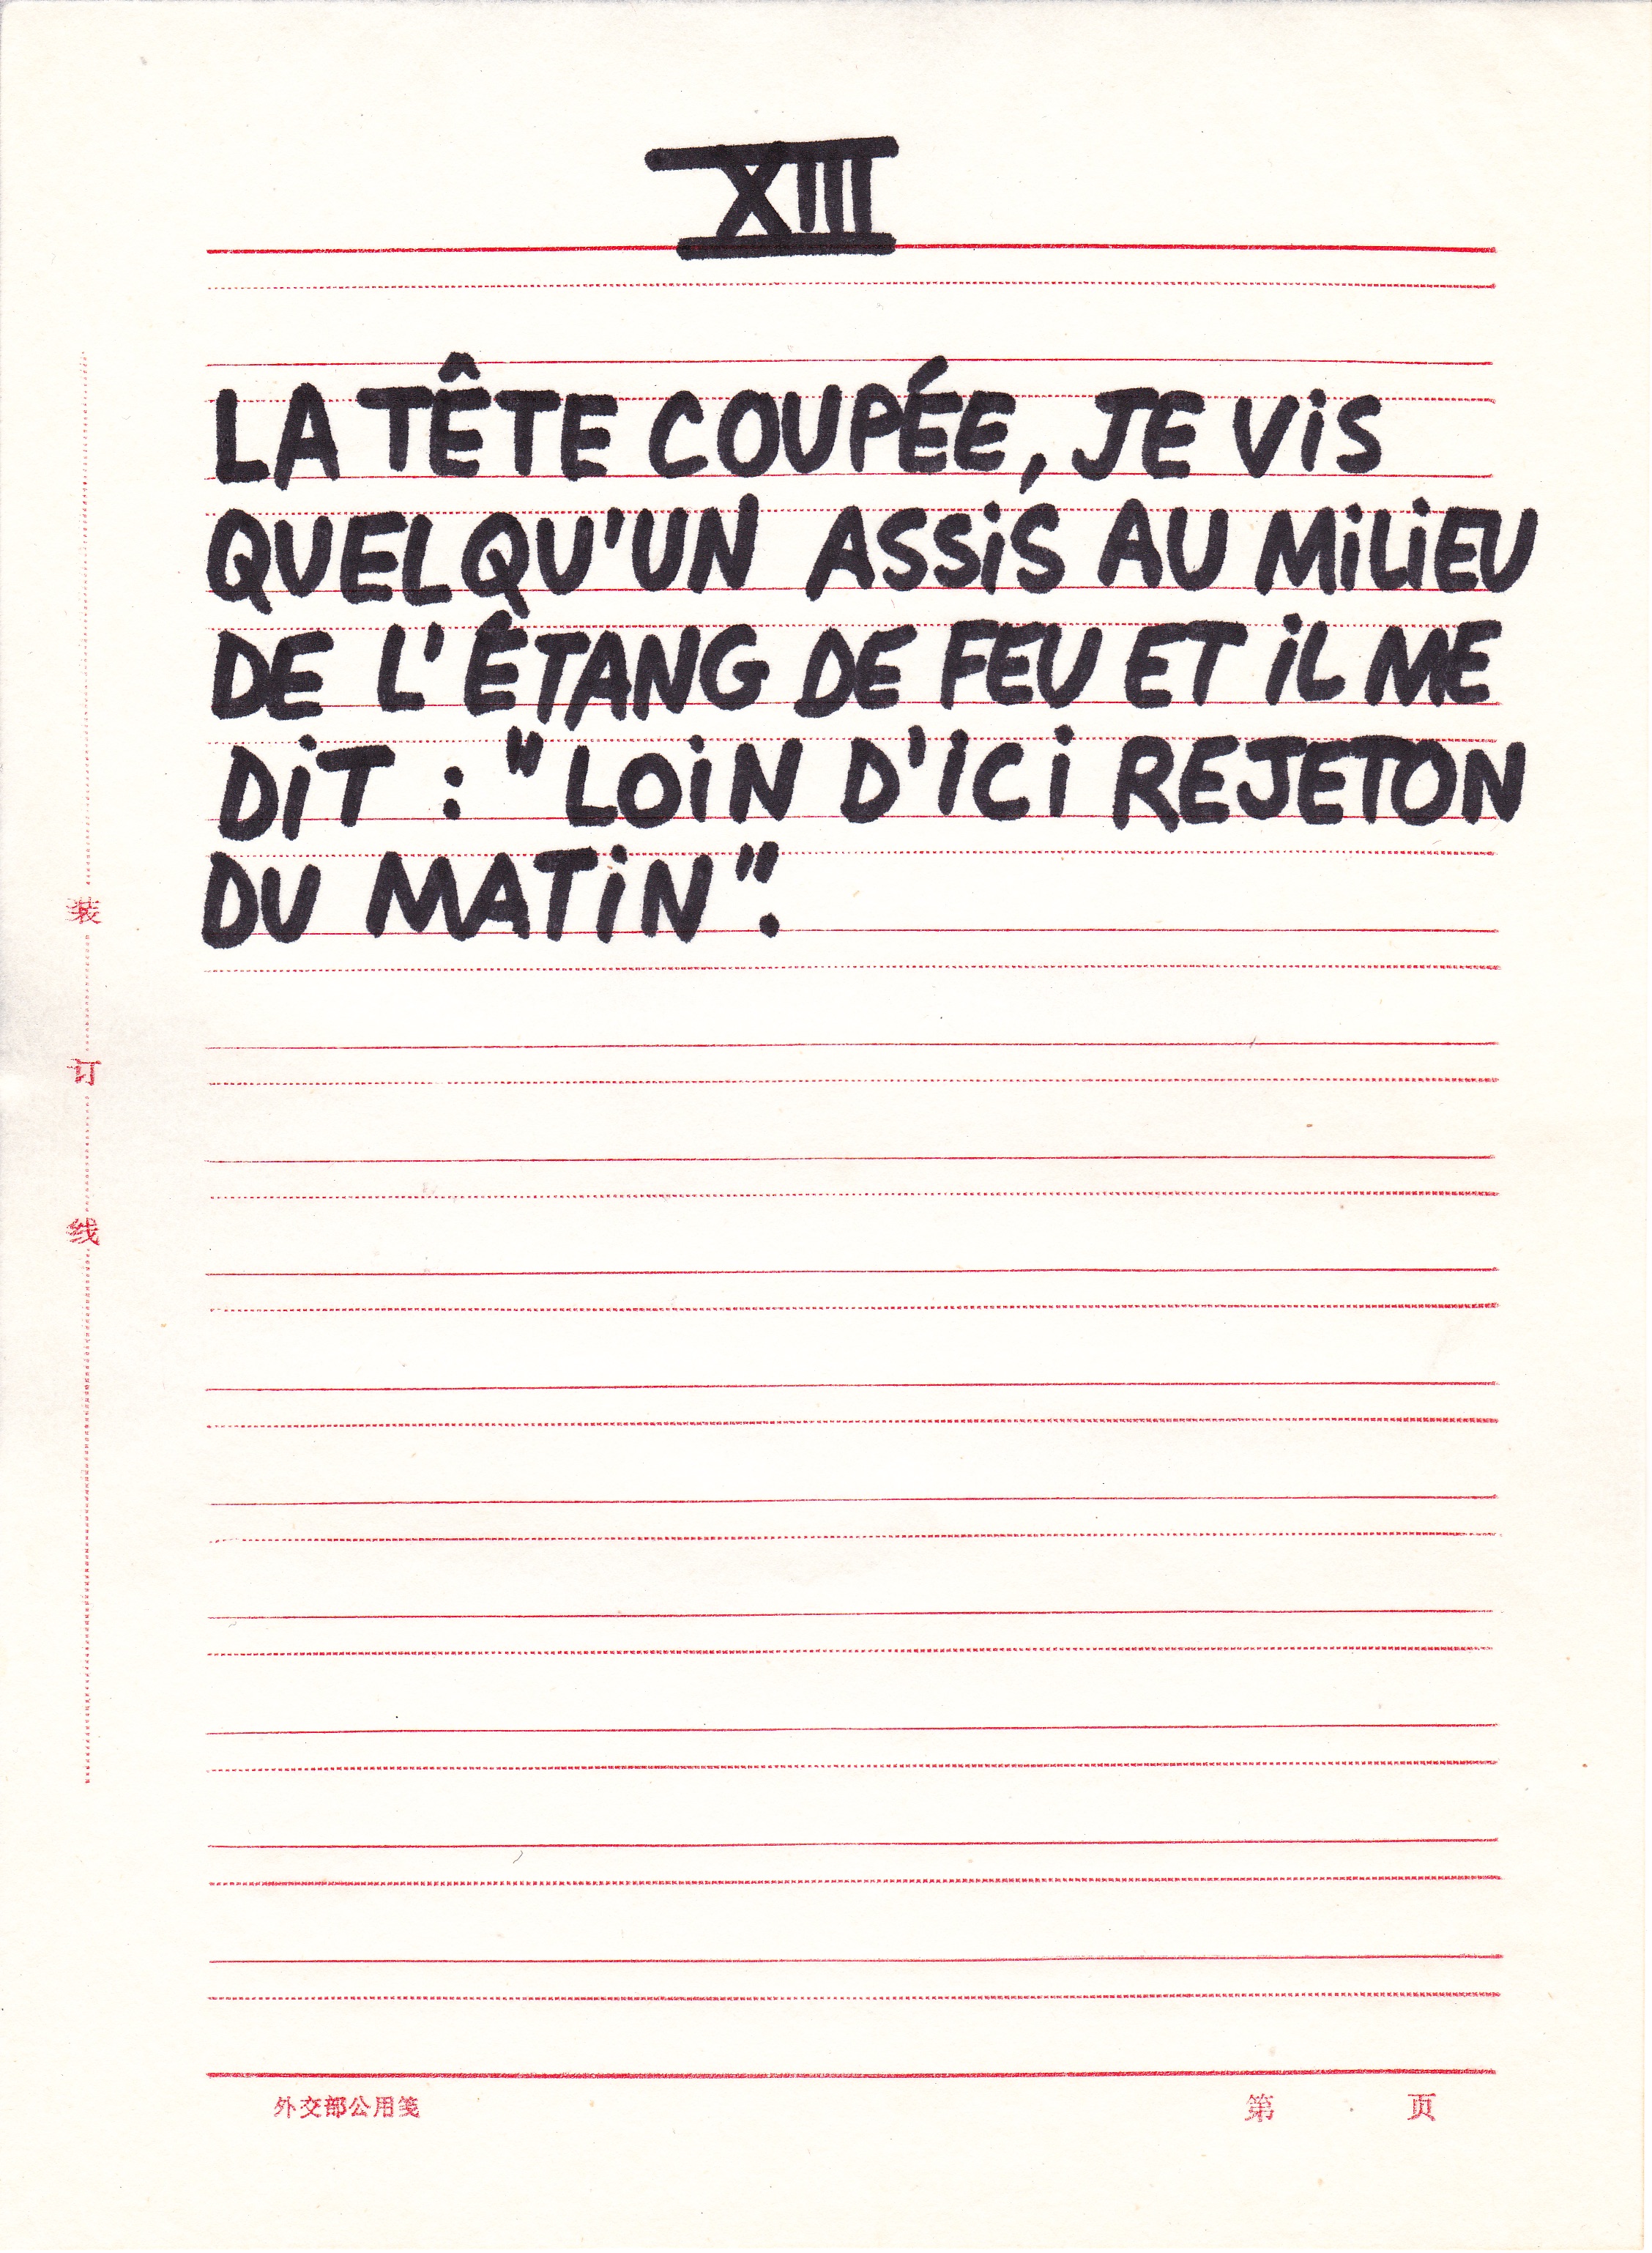 XIII
LA TÊTE COUPÉE, JE ViS
QUELQU'UN ASSiS AU MiLiEU
DE L'ÊTANG DE FEU ET iL ME
DiT : "LOiN D'iCi REJETON
DU MATiN".
装
订
线
外交部公用笺
第 页